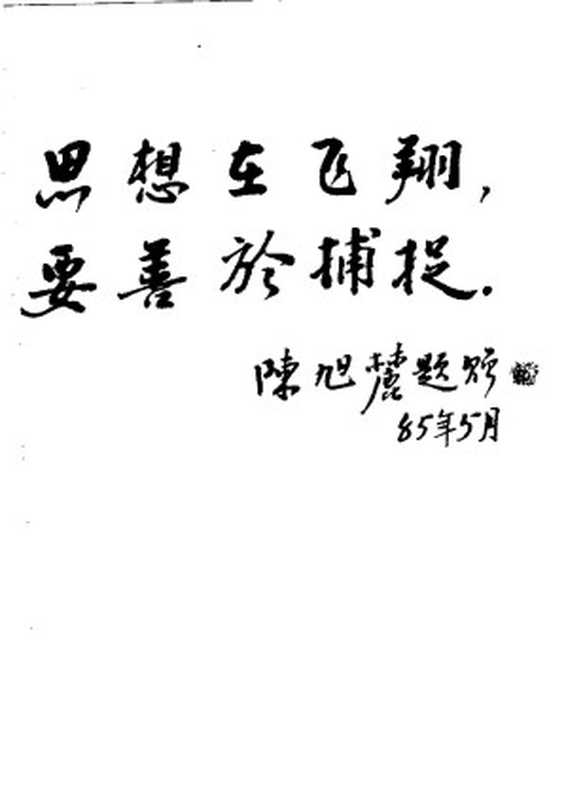 思想在飞翔，
要善於捕捉．
陳旭麓題贈
85年5月